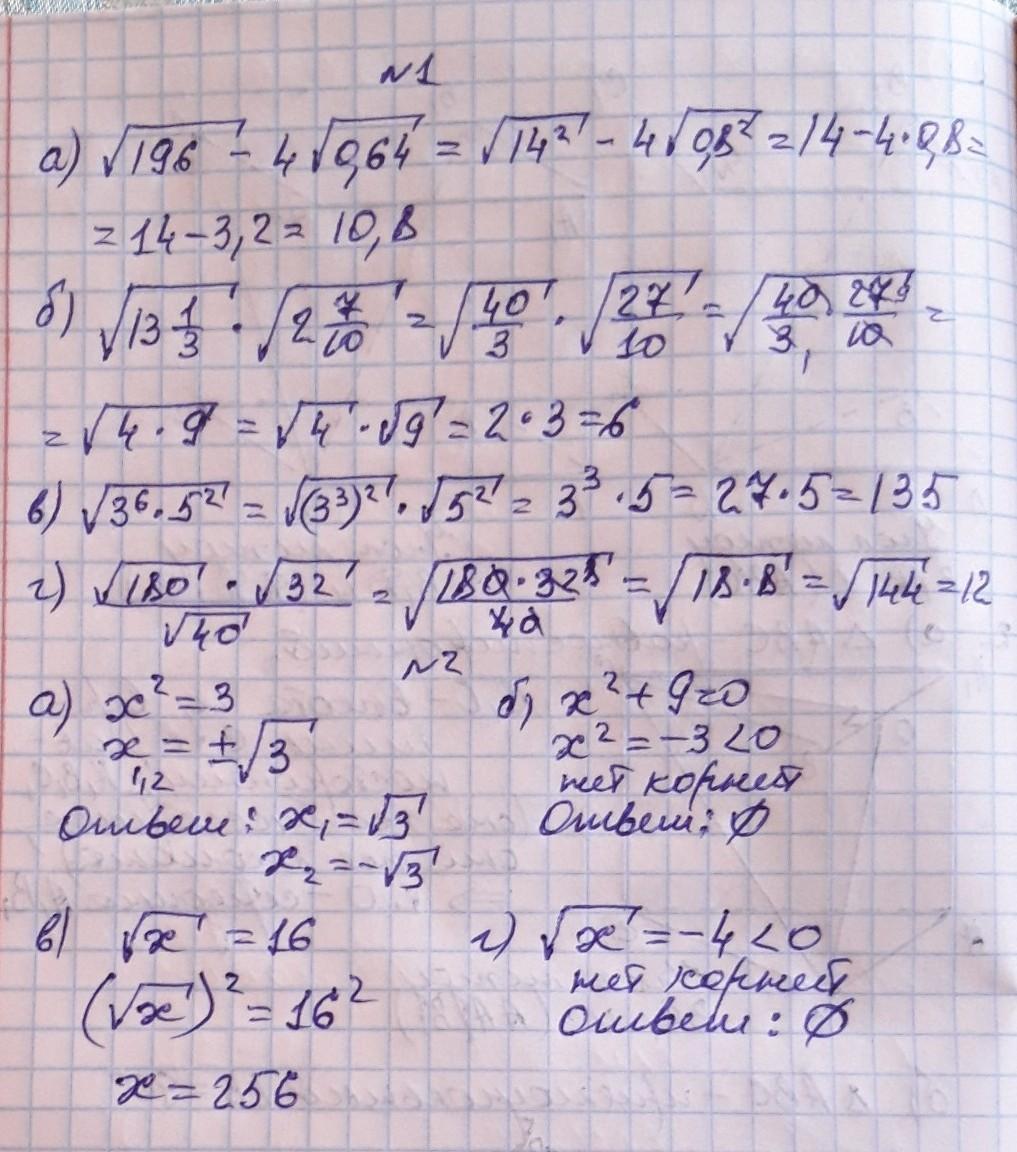 №1
а) √196 - 4√0,64 = √14² - 4√0,8² = 14 - 4·0,8 =
= 14 - 3,2 = 10,8
б) √13 1/3 · √2 7/10 = √40/3 · √27/10 = √40/3 · 27/10 =
= √4·9 = √4 · √9 = 2·3 = 6
в) √3⁶·5² = √(3³)² · √5² = 3³·5 = 27·5 = 135
г) √180 · √32 / √40 = √180·32 8/40 = √18·8 = √144 = 12
№2
а) x² = 3
x₁,₂ = ±√3
Ответ: x₁ = √3
x₂ = -√3
б) x² + 9 = 0
x² = -3 < 0
нет корней
Ответ: ∅
в) √x = 16
(√x)² = 16²
x = 256
г) √x = -4 < 0
нет корней
Ответ: ∅